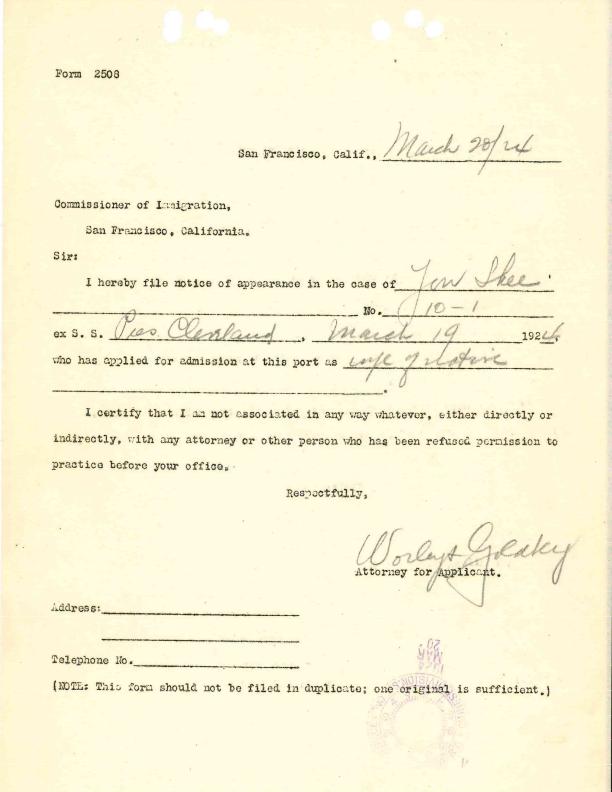 Form 2508
San Francisco, Calif., March 20/24
Commissioner of Immigration,
San Francisco, California.
Sir:
I hereby file notice of appearance in the case of Jow Shee
No. 10-1
ex S. S. Pres Cleveland , March 19 1924.
who has applied for admission at this port as wife of native
.
I certify that I am not associated in any way whatever, either directly or
indirectly, with any attorney or other person who has been refused permission to
practice before your office.
Respectfully,
Attorney for Applicant.
Address:
Telephone No.
(NOTE: This form should not be filed in duplicate; one original is sufficient.)